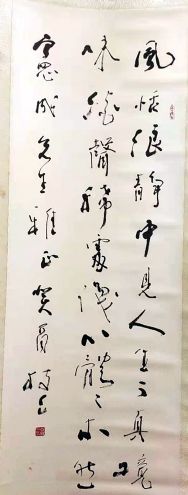 風恬浪靜中見人生之真境
味淡聲稀處識心體之本然
思成先生雅正癸酉